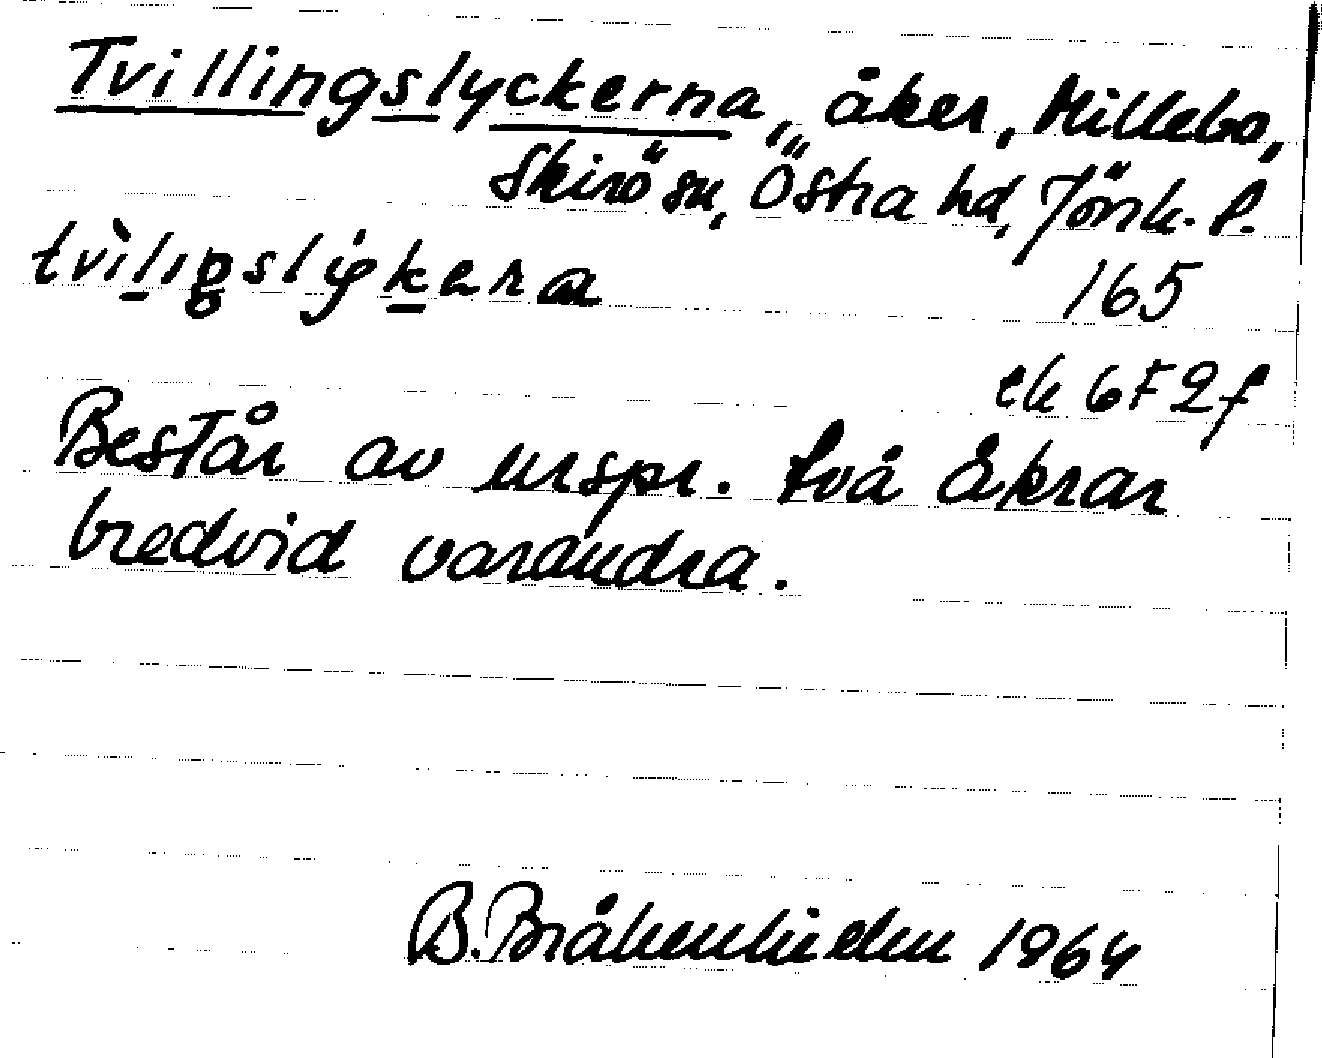 Tvillingslyckerna, åker, Millebo,
Skirö sn, Östra hd, Jönk. l.
165
ek 6F2f
Består av urspr. två åkrar
bredvid varandra.
B. 1964